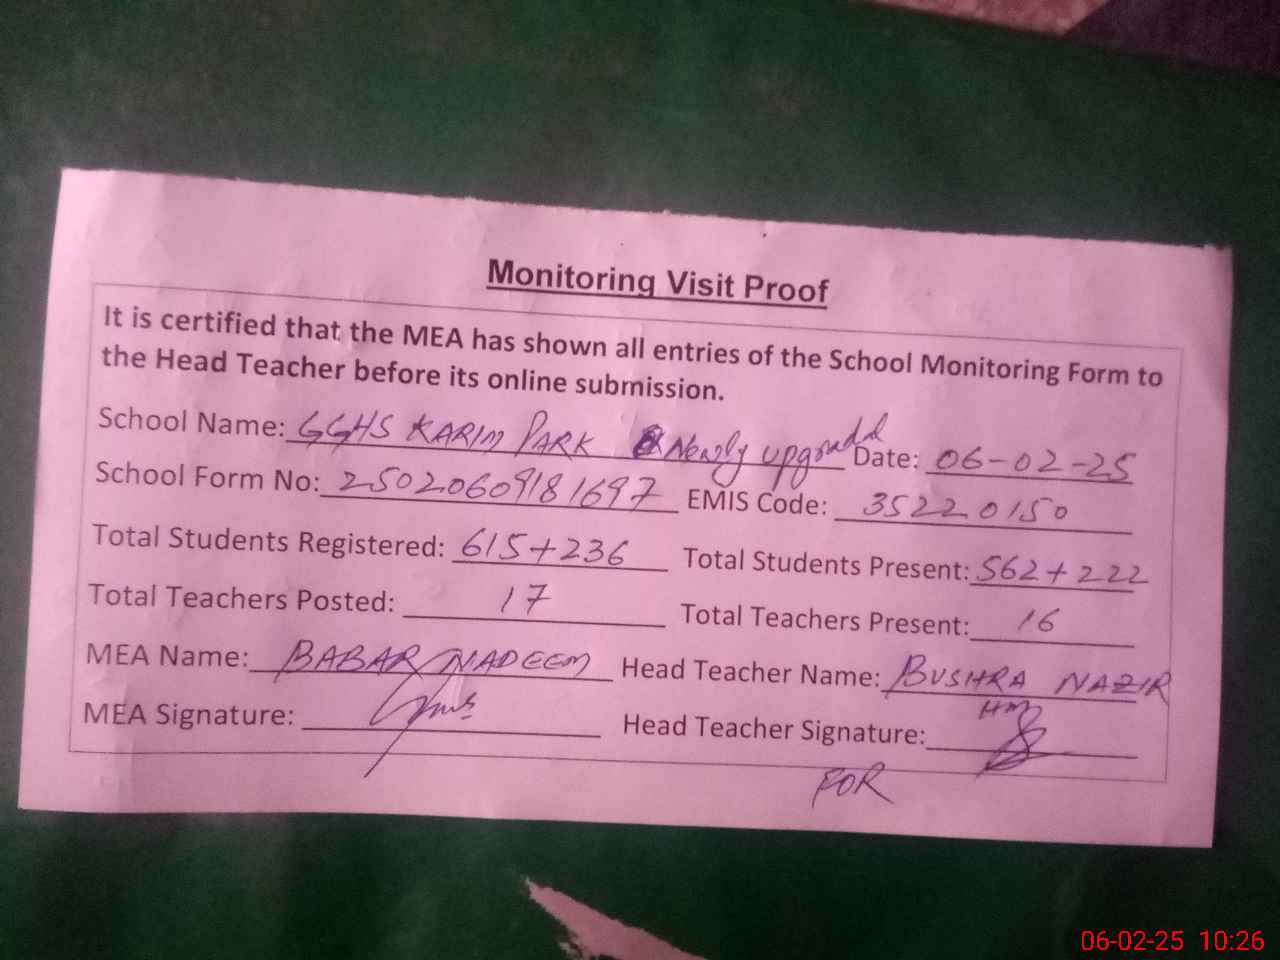 Monitoring Visit Proof
It is certified that the MEA has shown all entries of the School Monitoring Form to
the Head Teacher before its online submission.
School Name: GGHS KARIM PARK Newly upgraded Date: 06-02-25
School Form No: 25020609181697 EMIS Code: 35220150
Total Students Registered: 615+236 Total Students Present: 562+222
Total Teachers Posted: 17 Total Teachers Present: 16
MEA Name: BABAR NADEEM Head Teacher Name: BUSHRA NAZIR
MEA Signature: Head Teacher Signature: HM
FOR
06-02-25 10:26